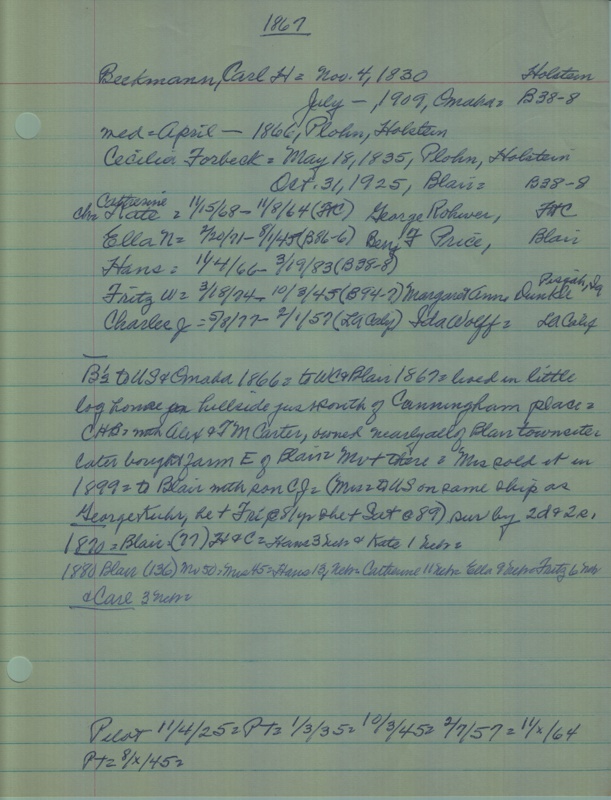 1867
Beckmann, Carl H = Nov. 4, 1830 Holstein
July — , 1909, Omaha = B38-8
med = April — 1866, Plohn, Holstein
Cecilia Forbeck = May 18, 1835, Plohn, Holstein
Oct. 31, 1925, Blair = B38-8
Catherine
ch = Kate = 11/15/68 - 11/8/64 (FtC) George Rohwer, FtC
Ella N = 2/20/71 - 8/1/45 (B86-6) Benj F Price, Blair
Hans = 11/4/66 - 3/19/83 (B38-8)
Pisgah, Ia
Fritz W = 3/18/74 - 10/3/45 (B94-7) Margaret Ann Dunkle
Charles J = 5/8/77 - 2/1/57 (LA Calif) Ida Wolff = LA Calif
B's to US & Omaha 1866 = to WC & Blair 1867 = lived in little
log house on hillside just south of Cunningham place =
CHB = with Alex & T M Carter, owned nearly all of Blair townsite
later bought farm E of Blair = Mv + there = Mrs sold it in
1899 = to Blair with son CJ = (Mrs = to US on same ship as
George Kuhr, he + Fri @ 81 yr & she + Sat @ 89) sur by 2d & 2s.
1870 = Blair (77) H & C = Hans 3 Nebr & Kate 1 Nebr =
1880 Blair (136) Mr 50 = Mrs 45 = Hans 13, Nebr = Catherine 11 Nebr Ella 9 Nebr = Fritz 6 Nebr
& Carl 3 Nebr =
Pilot 11/4/25 = PT = 1/3/35 = 10/3/45 = 2/7/57 = 11/x/64
PT = 8/x/45 =